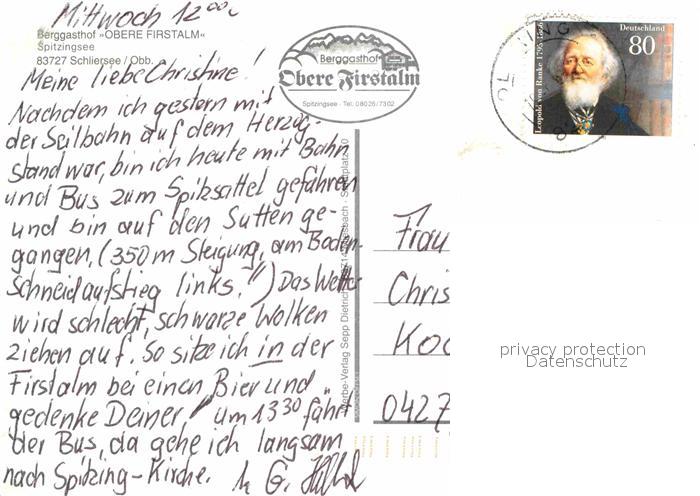 Mittwoch 12ºº
Berggasthof »OBERE FIRSTALM«
Spitzingsee
83727 Schliersee / Obb.
Berggasthof
Obere Firstalm
Spitzingsee · Tel. 08026/7302
Deutschland
80
Leopold von Ranke 1795-1886
Meine liebe Christine!
Nachdem ich gestern mit
der Seilbahn auf dem Herzog-
stand war, bin ich heute mit Bahn
und Bus zum Spitzsattel gefahren
und bin auf den Sutten ge-
gangen, (350 m Steigung, am Boden-
schneidaufstieg links!") Das Wetter
wird schlecht, schwarze Wolken
ziehen auf. So sitze ich in der
Firstalm bei einen Bier und
gedenke Deiner! um 13 30 fährt
der Bus, da gehe ich langsam
nach Spitzing-Kirche.
G.
Werbe-Verlag Sepp Dietrich
Frau
Chris
Koc
0427
privacy protection
Datenschutz